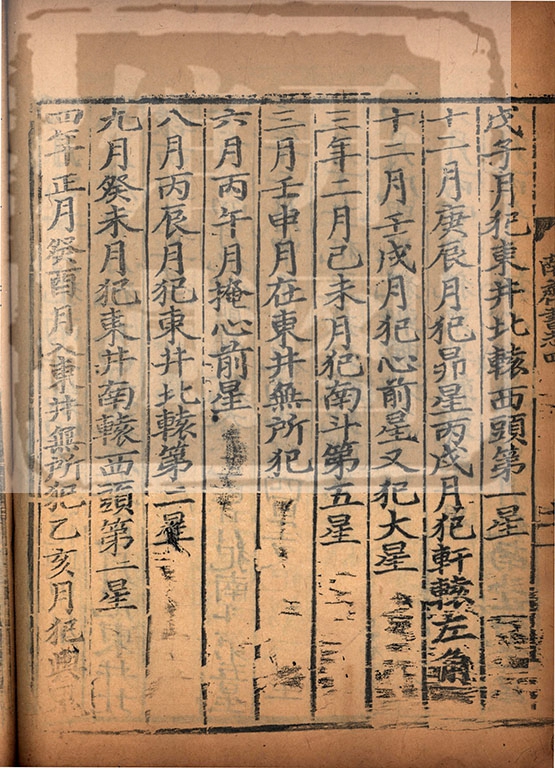 戊子月犯東井北轅西頭第一星
十二月庚辰月犯昴星丙戌月犯軒轅左角
十二月壬戌月犯心前星又犯大星
三年二月己未月犯南斗第五星
三月壬申月在東井無所犯
六月丙午月掩心前星
八月丙辰月犯東井北轅第二星
九月癸未月犯東井南轅西頭第二星
四年正月癸酉月入東井無所犯乙亥月犯輿